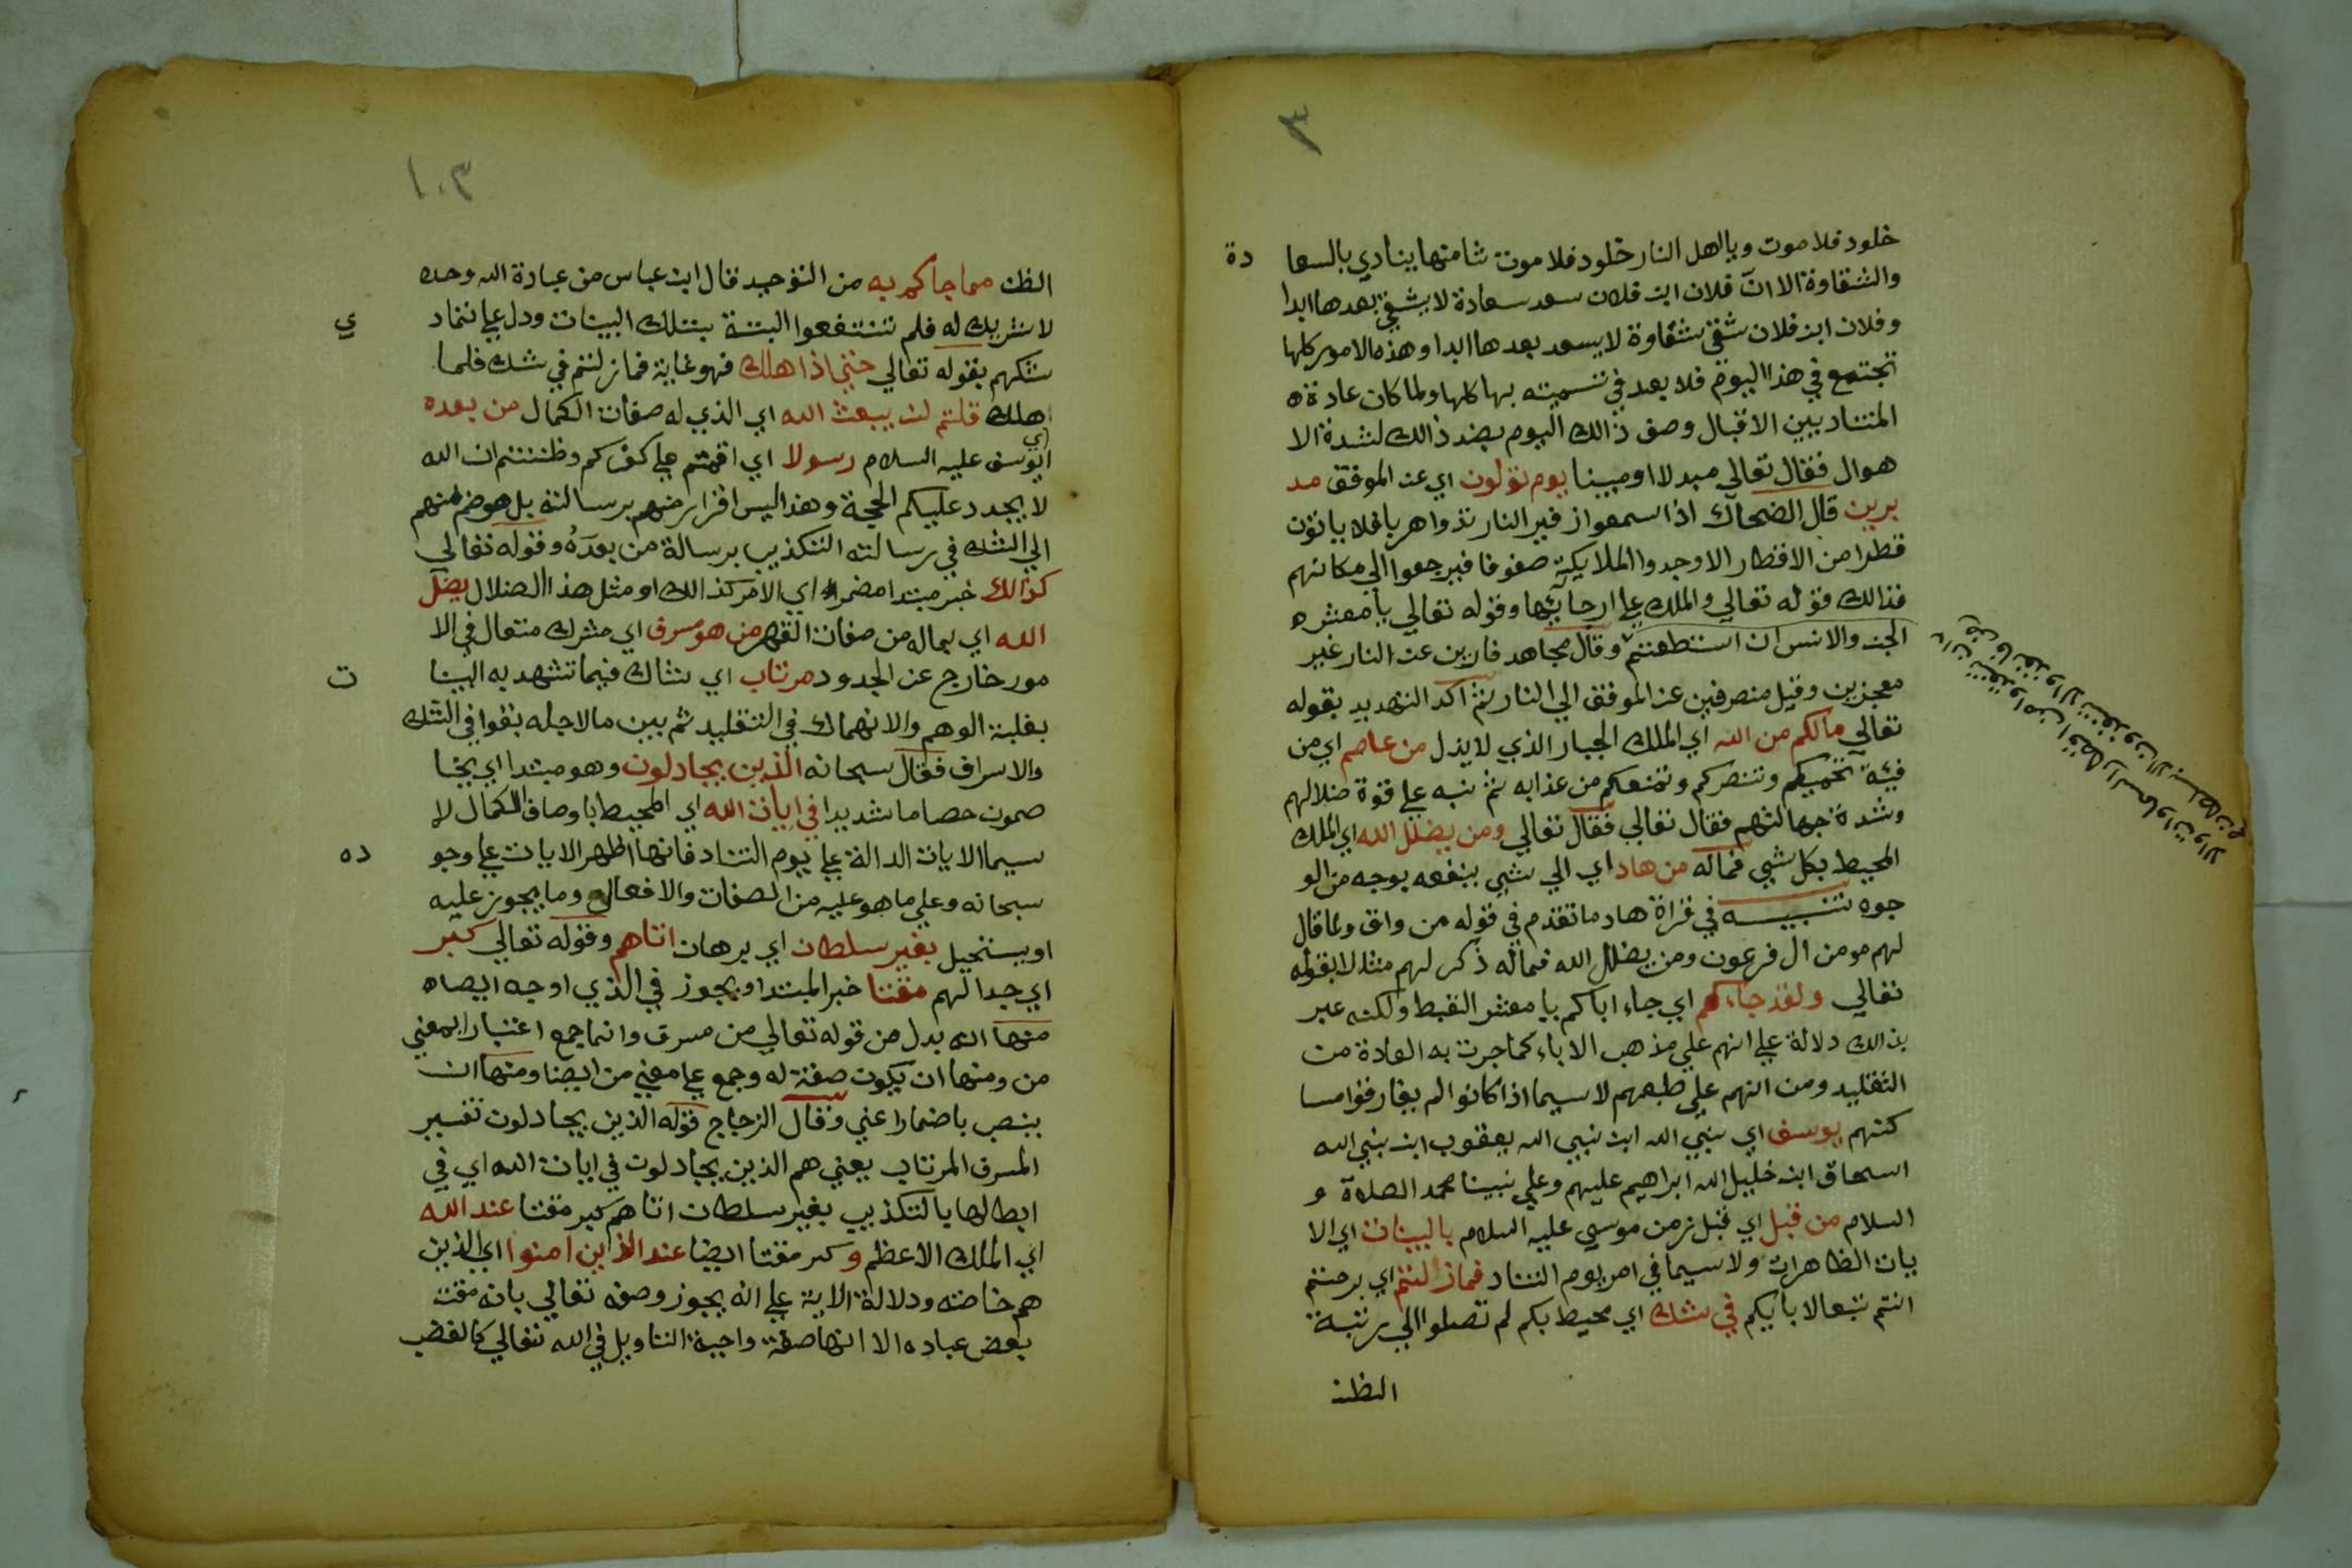 ٣
خلود فلا موت ويا اهل النار خلود فلا موت ثامنها ينادي بالسعا دة
والشقاوة الا ان فلان ابن فلان سعد سعادة لا يشقي بعدها ابدا
وفلان ابن فلان شقي شقاوة لا يسعد بعدها ابدا وهذه الامور كلها
تجتمع في هذا اليوم فلا بعد في تسميته بها كلها ولما كان عادة
المتناديين الاقبال وصف ذالك اليوم بضد ذالك لشدة الا
هوال فقال تعالي مبدلا او مبينا يوم تولون اي عن الموقف مد
برين قال الضحاك اذا سمعوا زفير النار ندوا هربا فلا ياتون
قطرا من الاقطار الا وجدوا الملايكة صفوفا فيرجعوا الي مكانهم
فذالك قوله تعالي والملك علي ارجايها وقوله تعالي يا معشر
الجن والانس ان استطعتم وقال مجاهد فارين عن النار غير
معجزين وقيل منصرفين عن الموقف الي النار ثم اكد التهديد بقوله
تعالي مالكم من الله اي الملك الجبار الذي لا يذل من عاصم اي من
فيئة تحميكم وتنصركم وتمنعكم من عذابه ثم نبه علي قوة ضلالهم
وشدة جهالتهم فقال تعالي فقال تعالي ومن يضلل الله اي الملك
المحيط بكل شي فماله من هاد اي الي شي ينفعه بوجه من الو
جوه تنبيه في قراة هاد ما تقدم في قوله من واق ولما قال
لهم مومن ال فرعون ومن يضلل الله فماله ذكر لهم مثلا بقوله
تعالي ولقد جاءكم اي جاء اباكم يا معشر القبط ولكنه عبر
بذالك دلالة علي انهم علي مذهب الاباء كما جرت به العادة من
التقليد ومن انهم علي طبعهم لا سيما اذا كانوا لم يفارقوا مسا
كنهم يوسف اي نبي الله ابن نبي الله يعقوب ابن نبي الله
اسحاق ابن خليل الله ابراهيم عليهم وعلي نبينا محمد الصلاة و
السلام من قبل اي قبل زمن موسي عليه السلام بالبينات اي الا
يات الظاهرات ولا سيما في امر يوم التناد فما زلتم اي برحتم
انتم تبعا لابايكم في شك اي محيط بكم لم تصلوا الي رتبة
الظن
ان تنفذوا من اقطار السماوات والا
رض فانفذوا لا تنفذون الا بسلطان
١٠٣
الظن مما جاكم به من التوحيد قال ابن عباس من عبادة الله وحده
لا شريك له فلم تنتفعوا البتة بتلك البينات ودل علي تماد ي
شكهم بقوله تعالي حتي اذا هلك فهو غاية فما زلتم في شك فلما
هلك قلتم لن يبعث الله اي الذي له صفات الكمال من بعده
اي يوسف عليه السلام رسولا اي اقمتم علي كفركم وظننتم ان الله
لا يجدد عليكم الحجة وهذا ليس اقرار منهم برسالته بل هو ضم منهم
الي الشك في رسالته التكذيب برسالة من بعده وقوله تعالي
كذالك خبر مبتدا مضمر اي الامر كذالك او مثل هذا الضلال يضل
الله اي بماله من صفات القهر من هو مسرف اي مشرك متعال في الا
مور خارج عن الحدود مرتاب اي شاك فيما تشهد به البينا ت
بغلبة الوهم والانهماك في التقليد ثم بين مالاجله بقوا في الشك
والاسراف فقال سبحانه الذين يجادلون وهو مبتدا اي يخا
صمون خصاما شديدا في ايات الله اي المحيط باوصاف الكمال لا
سيما الايات الدالة علي يوم التناد فانها اظهر الايات علي وجو ده
سبحانه وعلي ما هو عليه من الصفات والافعال وما يجوز عليه
او يستحيل بغير سلطان اي برهان اتاهم وقوله تعالي كبر
اي جدالهم مقتا خبر المبتدا ويجوز في الذي اوجه ايضاه
منها انه بدل من قوله تعالي من مسرف وانما جمع اعتبارا بمعني
من ومنها ان يكون صفة له وجمع علي معني من ايضا ومنها ان
ينصب باضمار اعني وقال الزجاج قوله الذين يجادلون تفسير
المسرف المرتاب يعني هم الذين يجادلون في ايات الله اي في
ابطالها بالتكذيب بغير سلطان اتاهم كبر مقتا عند الله
اي الملك الاعظم وكبر مقتا ايضا عند الذين امنوا اي الذين
هم خاصته ودلالة الاية علي انه يجوز وصفه تعالي بانه مقت
بعض عباده الا انها صفة واجبة التاويل في الله تعالي كالغضب